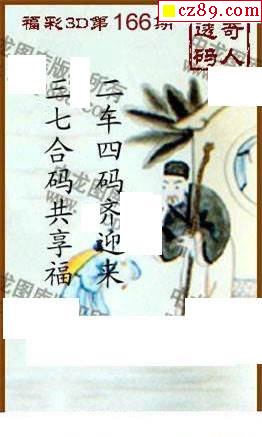 cz89.com
福彩3D第166期
奇人
透码
二车四码齐迎来
三七合码共享福